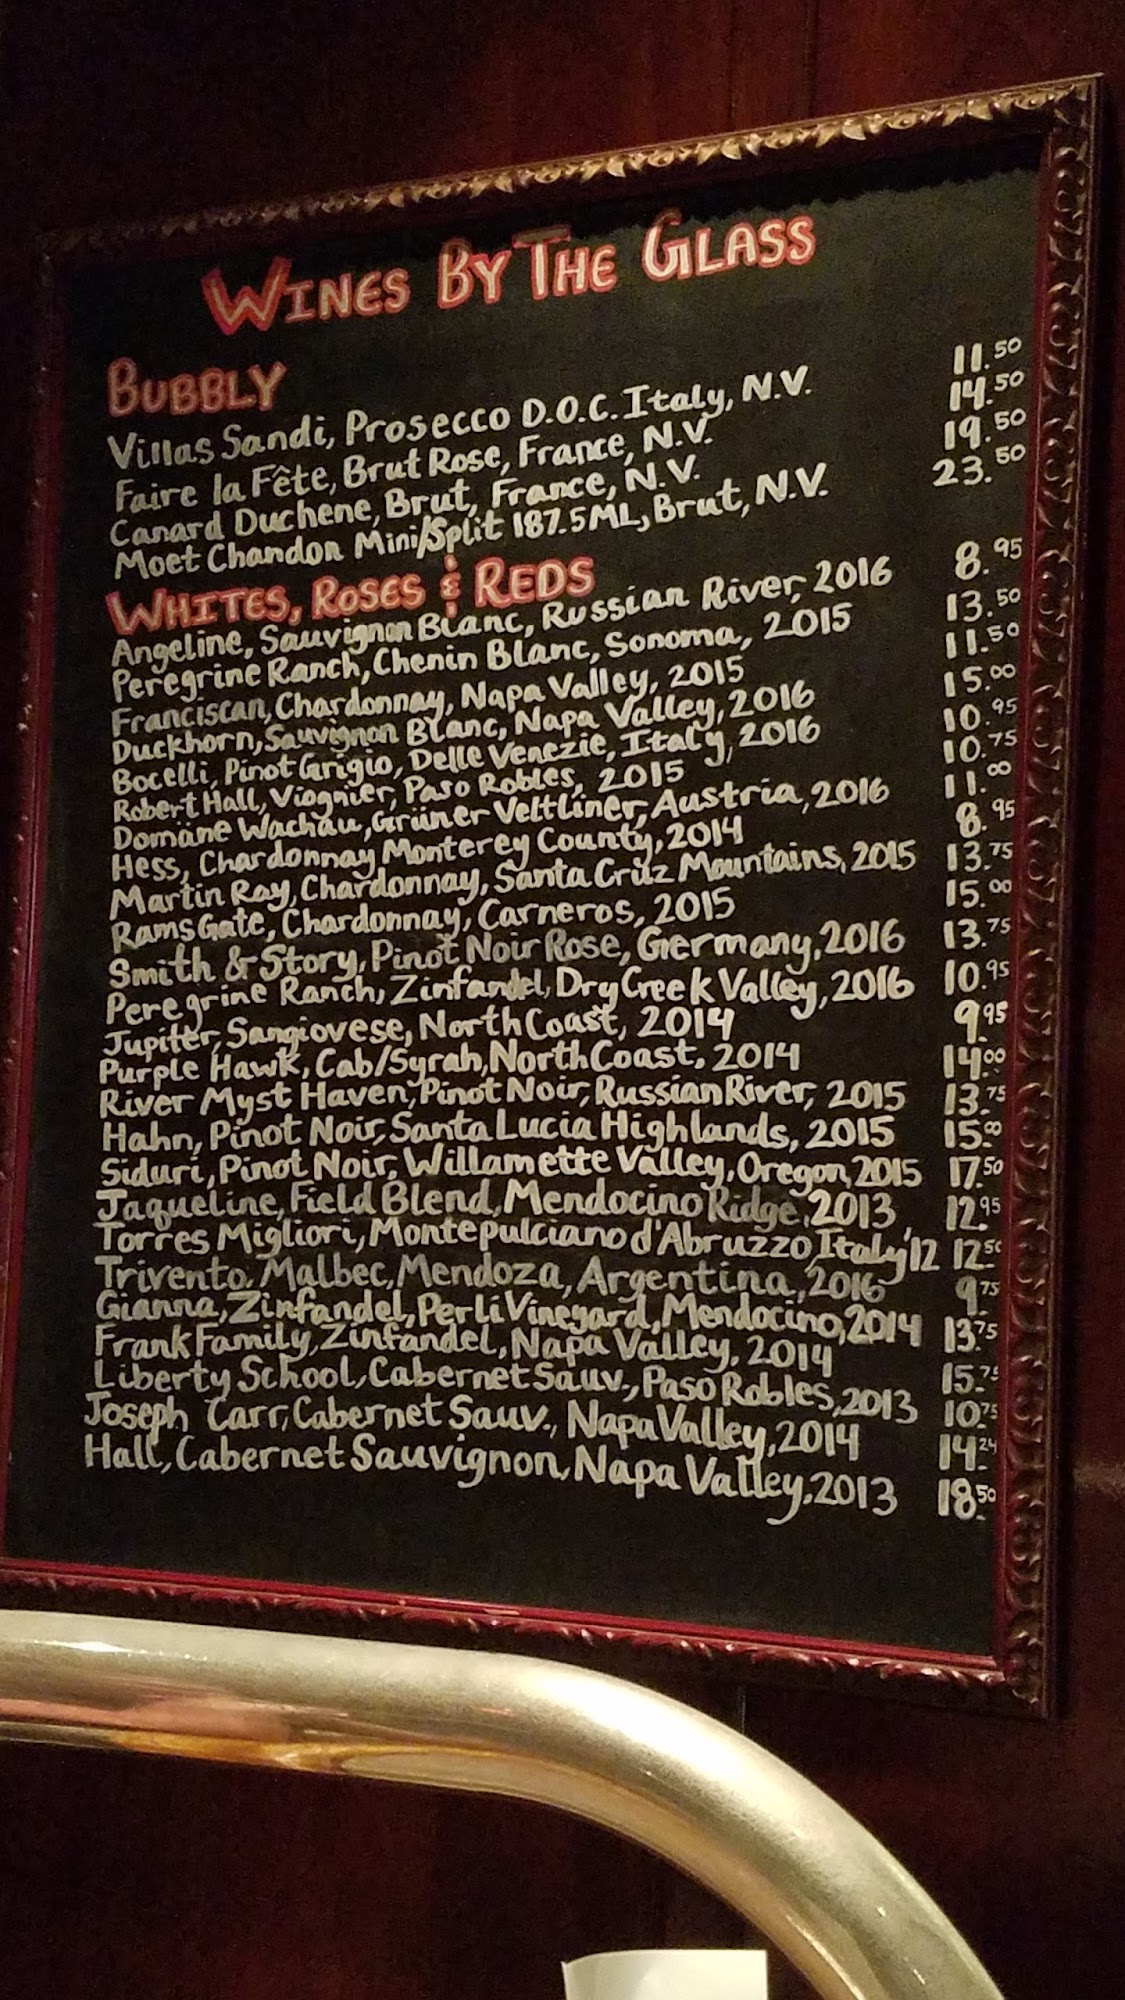 WINES BY THE GLASS
BUBBLY
Villas Sandi, Prosecco D.O.C. Italy, N.V. 11.50
Faire la Fête, Brut Rose, France, N.V. 14.50
Canard Duchene, Brut, France, N.V. 19.50
Moet Chandon Mini/Split 187.5ML, Brut, N.V. 23.50
WHITES, ROSES & REDS
Angeline, Sauvignon Blanc, Russian River, 2016 8.95
Peregrine Ranch, Chenin Blanc, Sonoma, 2015 13.50
Franciscan, Chardonnay, Napa Valley, 2015 11.50
Duckhorn, Sauvignon Blanc, Napa Valley, 2016 15.00
Bocelli, Pinot Grigio, Delle Venezie, Italy, 2016 10.95
Robert Hall, Viognier, Paso Robles, 2015 10.75
Domane Wachau, Grüner Veltliner, Austria, 2016 11.00
Hess, Chardonnay Monterey County, 2014 8.95
Martin Ray, Chardonnay, Santa Cruz Mountains, 2015 13.75
RamsGate, Chardonnay, Carneros, 2015 15.00
Smith & Story, Pinot Noir Rose, Germany, 2016 13.75
Peregrine Ranch, Zinfandel, Dry Creek Valley, 2016 10.95
Jupiter, Sangiovese, North Coast, 2014 9.95
Purple Hawk, Cab/Syrah, North Coast, 2014 14.00
River Myst Haven, Pinot Noir, Russian River, 2015 13.75
Hahn, Pinot Noir, Santa Lucia Highlands, 2015 15.00
Siduri, Pinot Noir, Willamette Valley, Oregon, 2015 17.50
Jaqueline, Field Blend, Mendocino Ridge, 2013 12.95
Torres Migliori, Montepulciano d'Abruzzo, Italy '12 12.50
Trivento, Malbec, Mendoza, Argentina, 2016 9.75
Gianna, Zinfandel, Perli Vineyard, Mendocino, 2014 13.75
Frank Family, Zinfandel, Napa Valley, 2014 15.75
Liberty School, Cabernet Sauv., Paso Robles, 2013 10.75
Joseph Carr, Cabernet Sauv., Napa Valley, 2014 14.24
Hall, Cabernet Sauvignon, Napa Valley, 2013 18.50